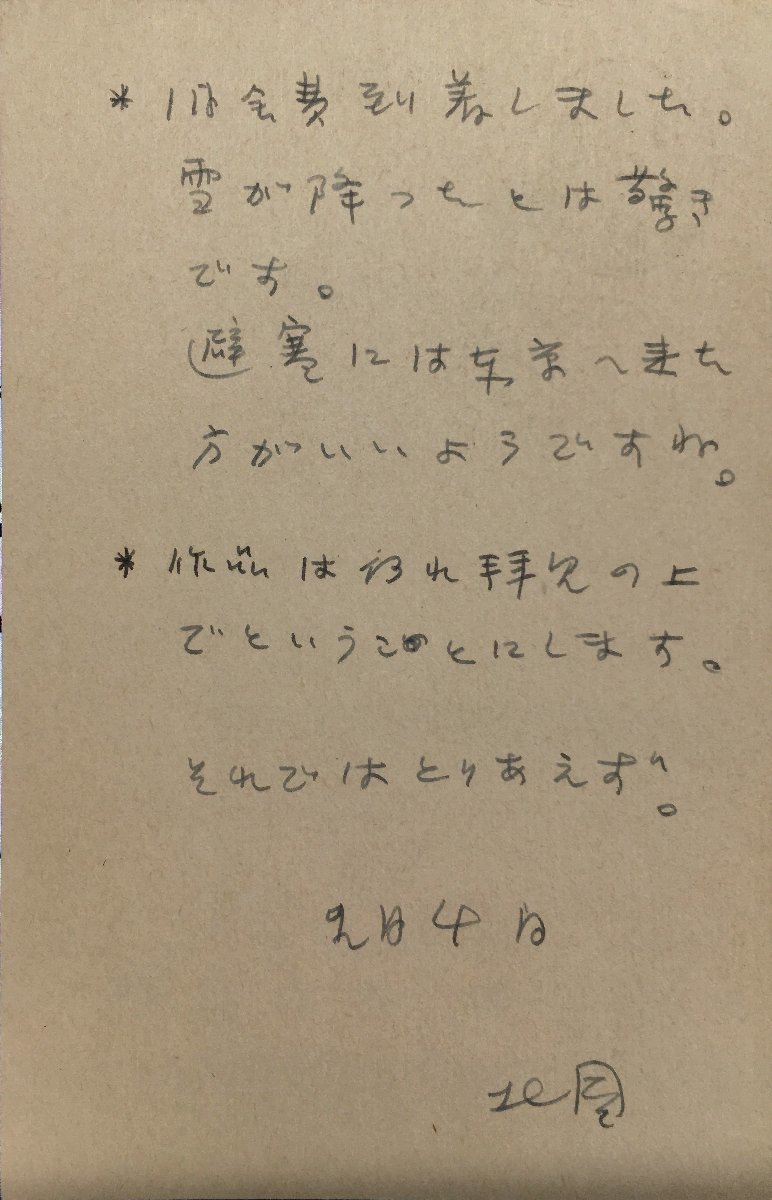 * 1月会費到着しました。
雪が降ったとは驚き
です。
避寒には東京へ来た
方がいいようですね。
* 作品は何れ拝見の上
でということにします。
それではとりあえず。
2月4日
北園